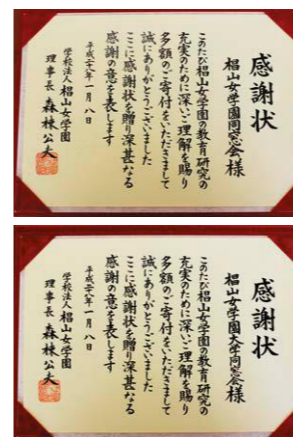 感謝状
椙山女学園同窓会様
このたび椙山女学園の教育研究の
充実のために深いご理解を賜り
多額のご寄付をいただきまして
誠にありがとうございました
ここに感謝状を贈り深甚なる
感謝の意を表します
平成二十八年一月八日
学校法人椙山女学園
理事長 森棟公夫
感謝状
椙山女学園大学同窓会様
このたび椙山女学園の教育研究の
充実のために深いご理解を賜り
多額のご寄付をいただきまして
誠にありがとうございました
ここに感謝状を贈り深甚なる
感謝の意を表します
平成二十八年一月八日
学校法人椙山女学園
理事長 森棟公夫